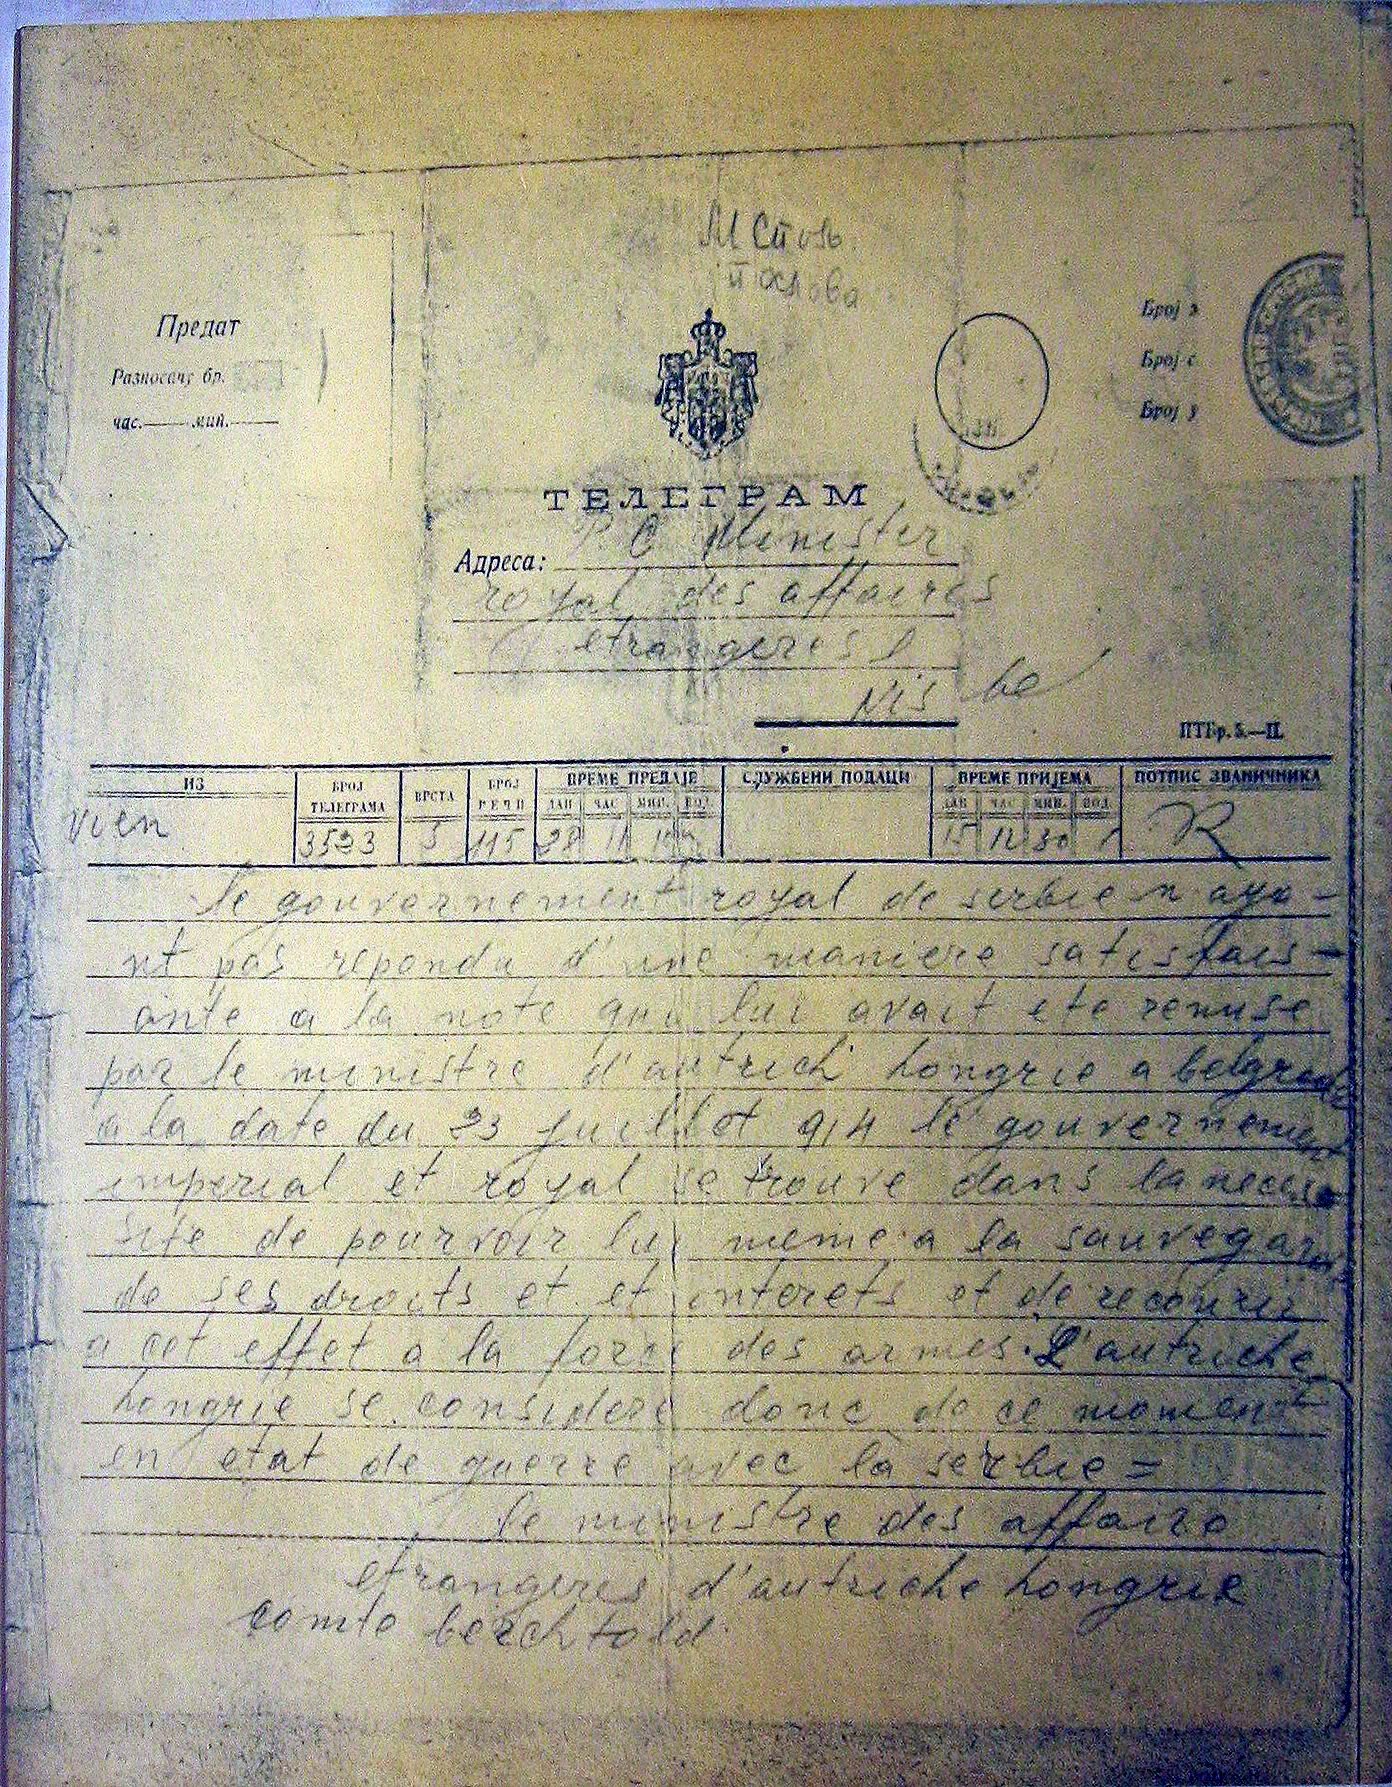 М Стољ
Послова
Предат
Разносачу бр.
час. мин.
Број
Број с
Број
ТЕЛЕГРАМ
Адреса: Minister
royal des affaires
etrangeres
Nis be
ПТБр. 5.—II.
ИЗ БРОЈ ТЕЛЕГРАМА ВРСТА БРОЈ РЕЧИ ВРЕМЕ ПРЕДАЈЕ СЛУЖБЕНИ ПОДАЦИ ВРЕМЕ ПРИЈЕМА ПОТПИС ЗВАНИЧНИКА
ДАН ЧАС МИН. ПОД. ДАН ЧАС МИН. ПОД.
vien 3523 5 115 28 11 10 15 12 30 R
le gouvernement royal de serbie n aya-
nt pas repondu d'une maniere satisfais-
ante a la note qui lui avait ete remise
par le ministre d'autrich hongrie a belgrade
a la date du 23 juillet 914 le gouvernement
imperial et royal se trouve dans la necess
site de pourvoir lui meme a la sauvegar
de ses droits et et interets et de recourir
a cet effet a la force des armes. L'autriche
hongrie se considere donc de ce moment
en etat de guerre avec la serbie =
le ministre des affaire
etrangeres d'autriche hongrie
comte berchtold